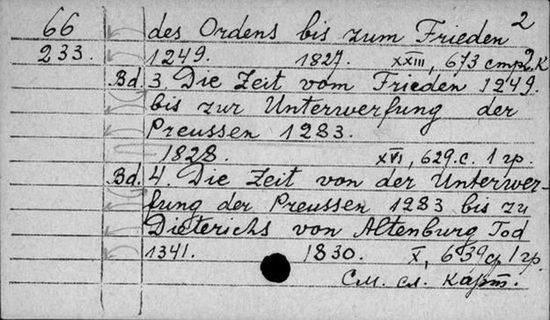 66
233.
2
des Ordens bis zum Frieden
1249. 1827. XXIII, 673 стр. 2 к
Bd. 3. Die Zeit vom Frieden 1249.
bis zur Unterwerfung der
Preussen 1283.
1828. XVI, 629.с. 1 гр.
Bd. 4. Die Zeit von der Unterwer-
fung der Preussen 1283 bis zu
Dieterichs von Altenburg Tod
1341. 1830. X, 639 ср 1 гр.
См. сл. карт.